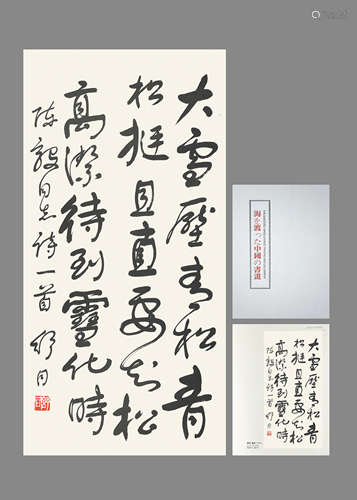 大雪壓青松青
松挺且直要知松
高潔待到雪化時
陈毅同志诗一首 舒同
海を渡った中國の書畫
大雪壓青松青
松挺且直要知松
高潔待到雪化時
陈毅同志诗一首 舒同